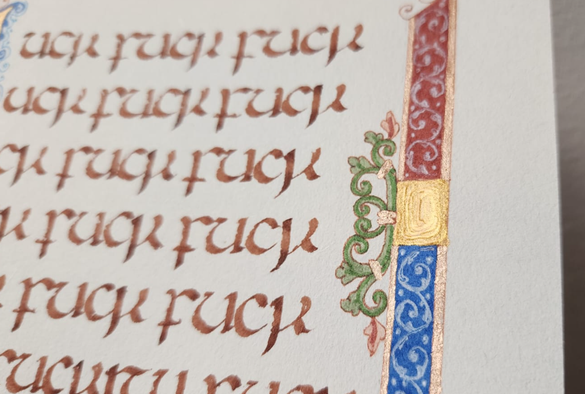 uck fuck fuck
uck fuck fuck
ck fuck fuck
k fuck fuck
fuck fuck